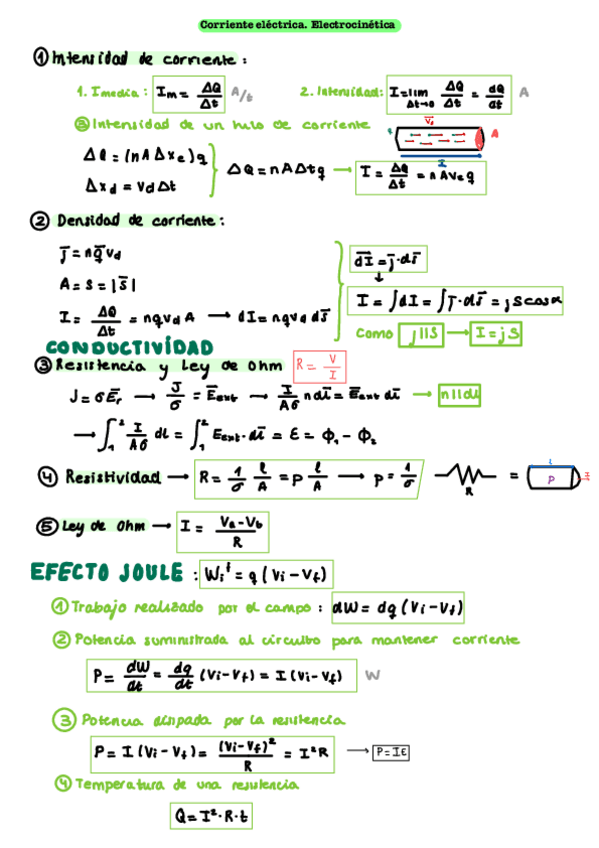 Corriente eléctrica. Electrocinética
① Intensidad de corriente:
1. Imedia: Im = ΔQ/Δt A/t 2. Intensidad: I = lim Δt→0 ΔQ/Δt = dQ/dt A
③ Intensidad de un hilo de corriente
ΔQ = (nAΔxe)q
Δxd = vdΔt
ΔQ = nAΔtq → I = ΔQ/Δt = nAveq
A
I
② Densidad de corriente:
J̄ = nq̄vd
A = S = |S̄|
I = ΔQ/Δt = nqvdA → dI = nqvd ds̄
dI = j̄·ds̄
↓
I = ∫dI = ∫J̄·ds̄ = jScosα
Como j||S → I = jS
CONDUCTIVIDAD
③ Resistencia y Ley de Ohm R = V/I
J = σEr → J/σ = Eext → I/Aσ ndl = Eext dl → n||dl
→ ∫₁² I/Aσ dl = ∫₁² Eext·dl = ε = Φ₁ − Φ₂
④ Resistividad → R = 1/σ l/A = ρ l/A → ρ = 1/σ
R
=
l
ρ
⑤ Ley de Ohm → I = Va−Vb/R
EFECTO JOULE: Wiᶠ = q(Vi−Vf)
① Trabajo realizado por el campo: dW = dq(Vi−Vf)
② Potencia suministrada al circuito para mantener corriente
P = dW/dt = dq/dt (Vi−Vf) = I(Vi−Vf) W
③ Potencia disipada por la resitencia
P = I(Vi−Vf) = (Vi−Vf)²/R = I²R → P=Iε
④ Temperatura de una resitencia
Q = I²·R·t